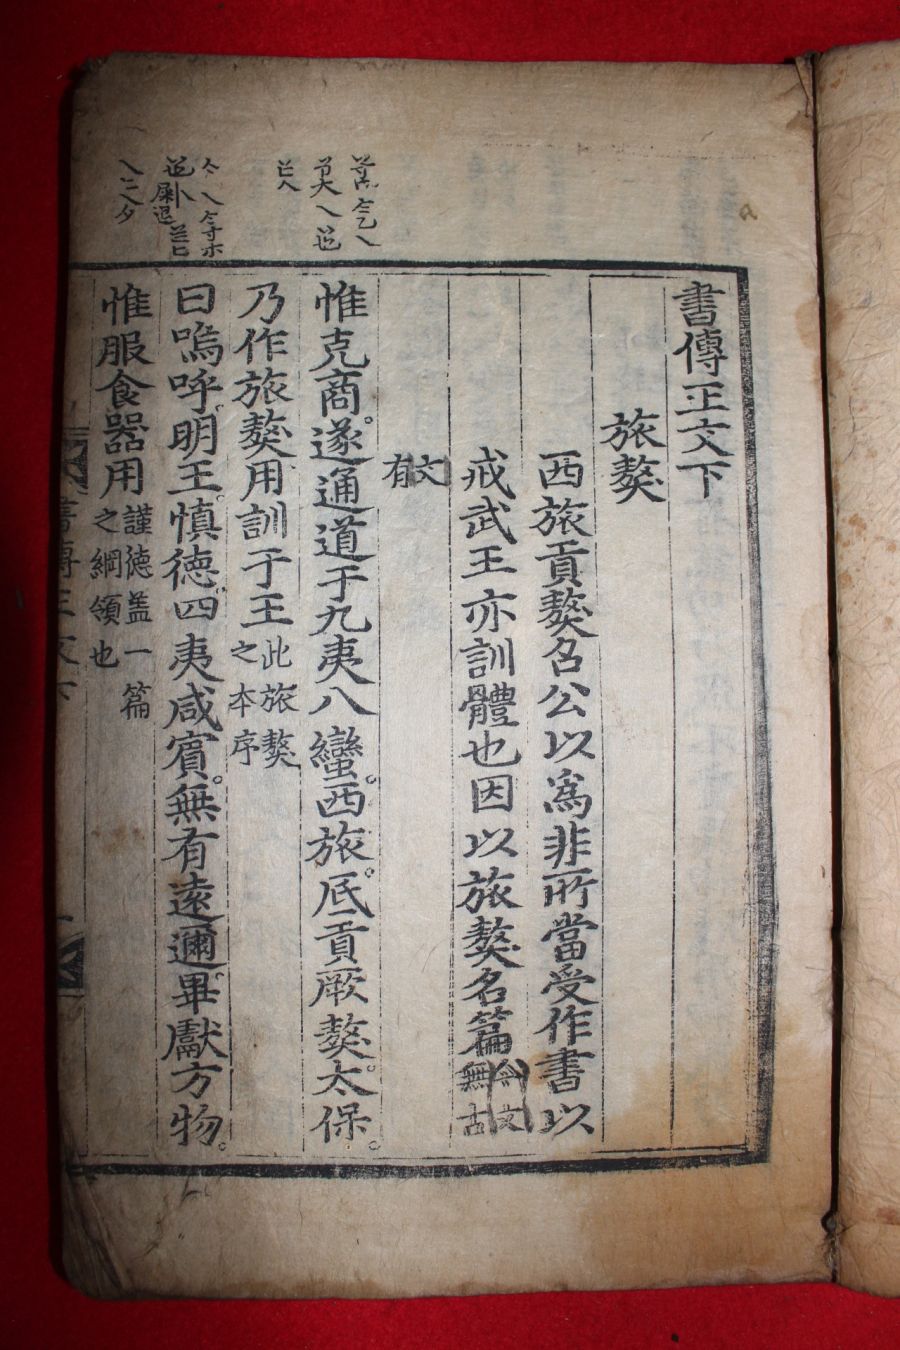 書傳正文下
旅獒
西旅貢獒召公以爲非所當受作書以
戒武王亦訓體也因以旅獒名篇今文無古
文有
惟克商遂通道于九夷八蠻西旅厎貢厥獒太保
乃作旅獒用訓于王此旅獒之本序
曰嗚呼明王愼德四夷咸賓無有遠邇畢獻方物
惟服食器用謹德盖一篇之綱領也
書傳正文下